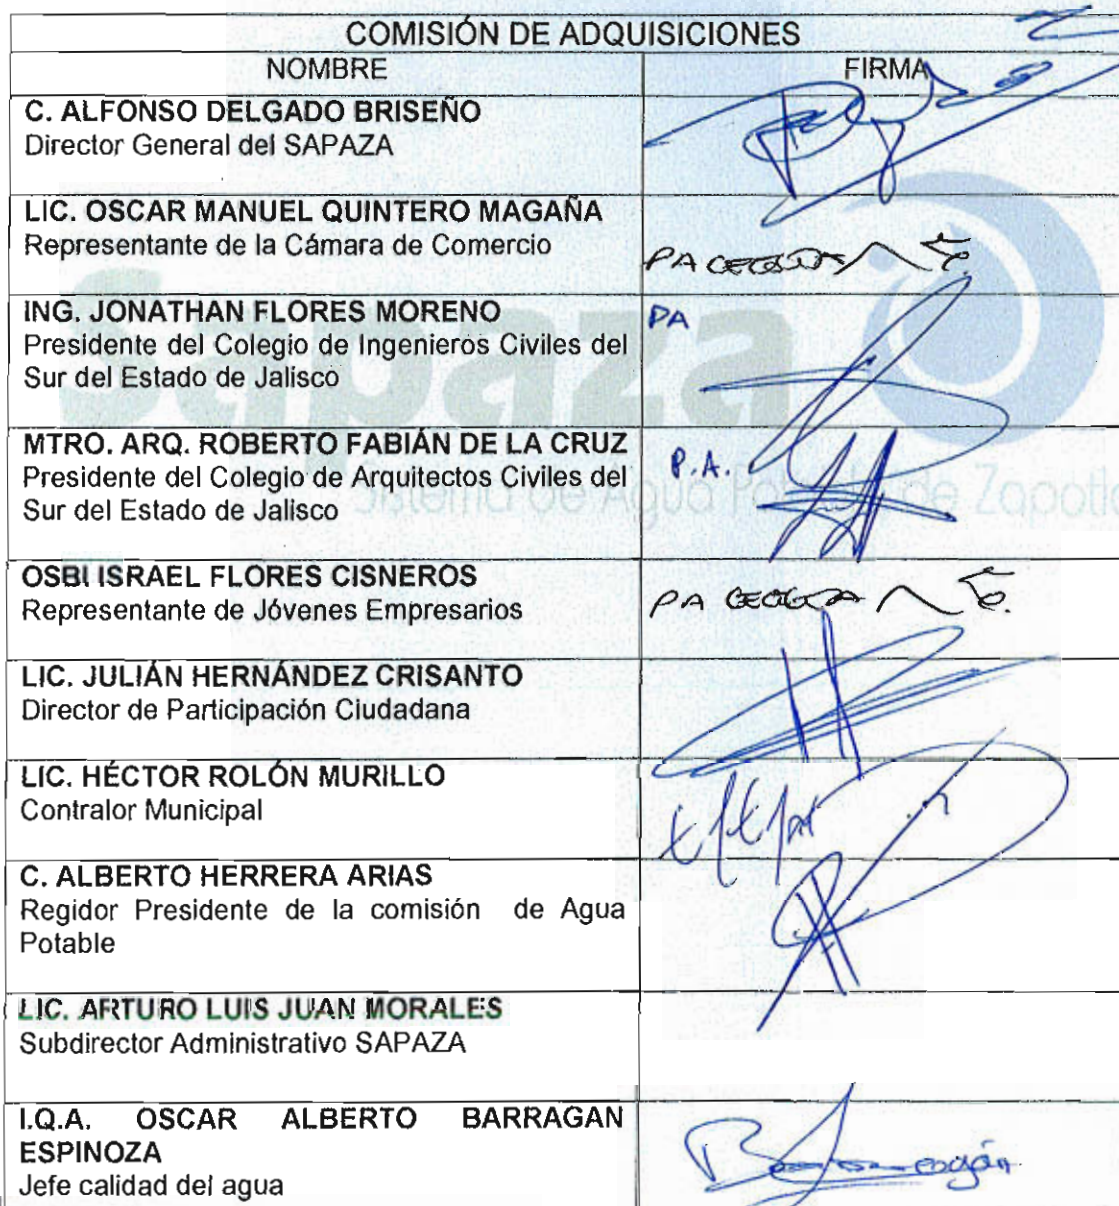 COMISIÓN DE ADQUISICIONES
NOMBRE FIRMA
C. ALFONSO DELGADO BRISEÑO
Director General del SAPAZA
LIC. OSCAR MANUEL QUINTERO MAGAÑA
Representante de la Cámara de Comercio
PA
ING. JONATHAN FLORES MORENO
PA
Presidente del Colegio de Ingenieros Civiles del
Sur del Estado de Jalisco
Sapaza
MTRO. ARQ. ROBERTO FABIÁN DE LA CRUZ
Presidente del Colegio de Arquitectos Civiles del
P.A.
Sur del Estado de Jalisco
Sistema de Agua Potable de Zapotla
OSBI ISRAEL FLORES CISNEROS
Representante de Jóvenes Empresarios
PA
LIC. JULIÁN HERNÁNDEZ CRISANTO
Director de Participación Ciudadana
LIC. HÉCTOR ROLÓN MURILLO
Contralor Municipal
C. ALBERTO HERRERA ARIAS
Regidor Presidente de la comisión de Agua
Potable
LIC. ARTURO LUIS JUAN MORALES
Subdirector Administrativo SAPAZA
I.Q.A. OSCAR ALBERTO BARRAGAN
ESPINOZA
Jefe calidad del agua